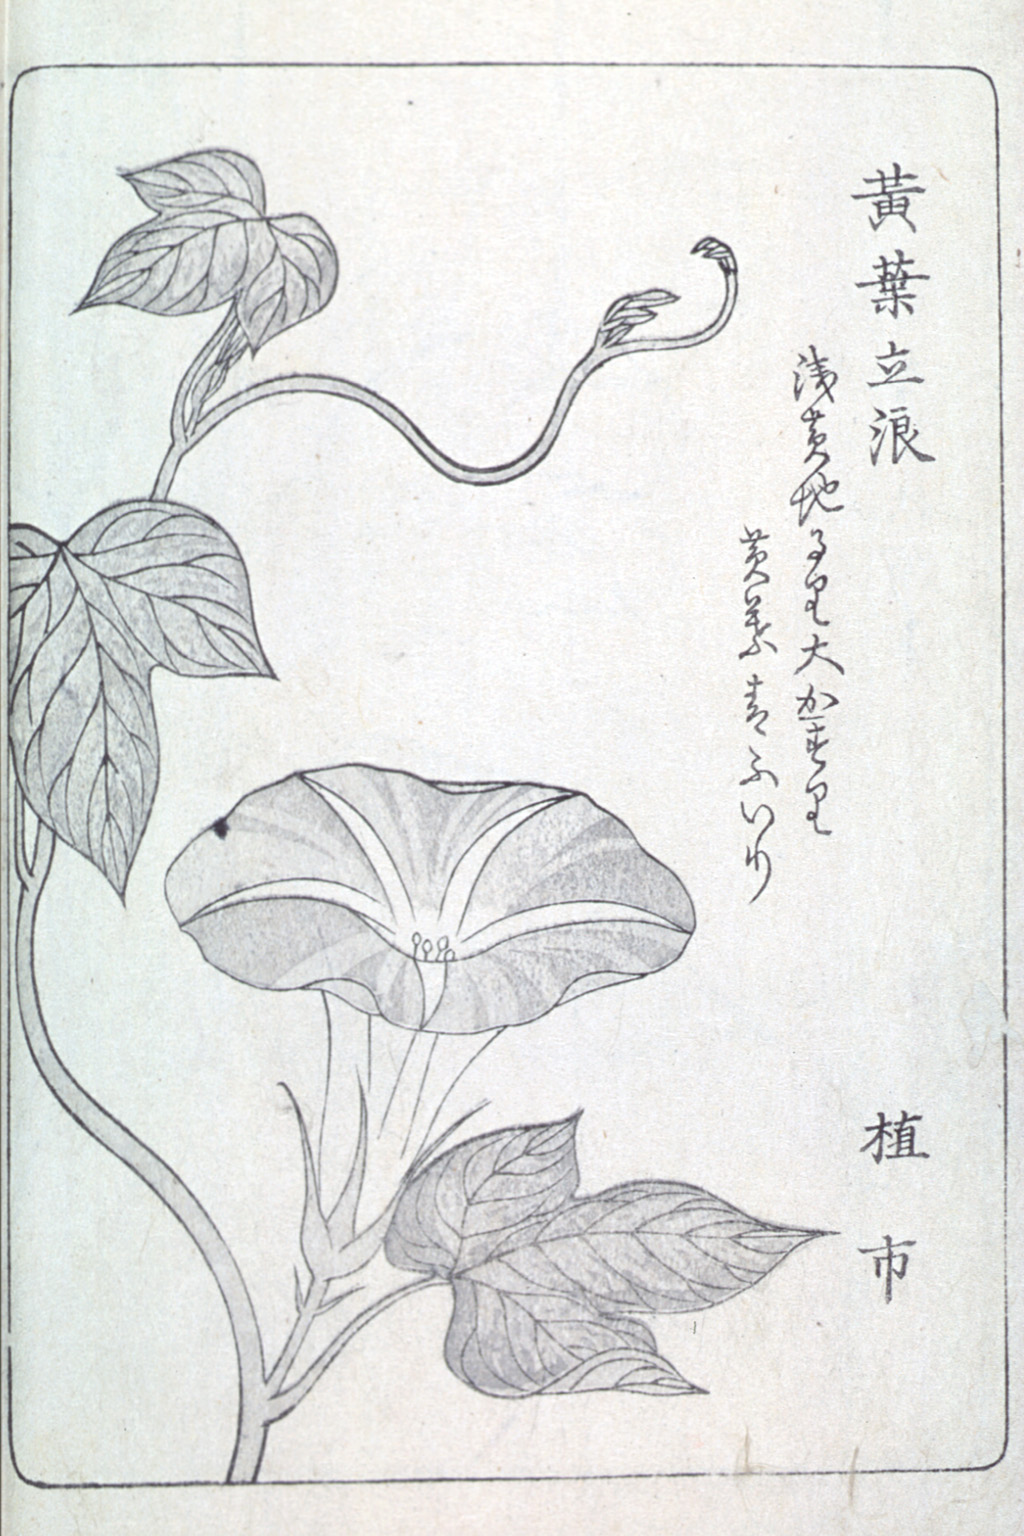 黃葉立浪
浅黄地るり大かすり
黄葉青ふいり
植市